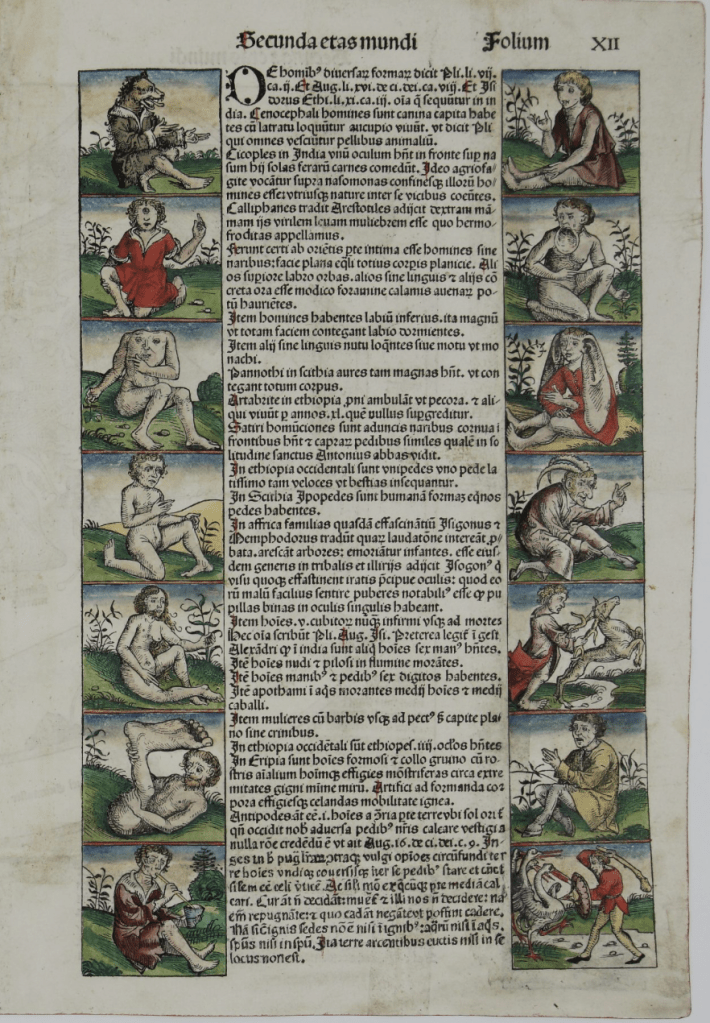 Secunda etas mundi Folium XII
DE homibꝰ diuersaꝝ formaꝝ dicit Pli. li. vij.
ca. ij. Et Aug. li. xvi. de ci. dei. ca. viij. Et Isi
dorus Ethi. li. xi. ca. iij. oīa q̄ sequūtur in in
dia. Cenocephali homines sunt canina capita habe
tes cū latratu loquūtur aucupio viuūt. vt dicit Pli
qui omnes vescūtur pellibus animaliū.
Cicoples in India vnū oculum hn̄t in fronte sup na
sum hij solas feraꝝ carnes comedūt. Ideo agriofa
gite vocātur supra nasomonas confinesqꝫ illoꝝ ho
mines esse: vtriusqꝫ nature inter se vicibus coeūtes.
Calliphanes tradit Arestotiles adijcit dextram mā
mam ijs virilem leuam muliebrem esse quo hermo
froditas appellamus.
Ferunt certi ab oriētis pte intima esse homines sine
naribus: facie plana eq̄li totius corpis planicie. Ali
os supiore labro orbas. alios sine linguis ⁊ alijs cō
creta ora esse modico foramine calamis auenaꝝ po
tū hauriētes.
Item homines habentes labiū inferius. ita magnū
vt totam faciem contegant labio dormientes.
Item alij sine linguis nutu loq̄ntes siue motu vt mo
nachi.
Pannothi in scithia aures tam magnas hn̄t. vt con
tegant totum corpus.
Artabrite in ethiopia ꝓni ambulāt vt pecora. ⁊ ali
qui viuūt ꝑ annos. xl. quē nullus supgreditur.
Satiri homūciones sunt aduncis naribus cornua i
frontibus hn̄t ⁊ capraꝝ pedibus similes qualē in so
litudine sanctus Antonius abbas vidit.
In ethiopia occidentali sunt vnipedes vno pede la
tissimo tam veloces vt bestias insequantur.
In Scithia Ipopedes sunt humanā formaꝫ eq̄nos
pedes habentes.
In affrica familias quasdā effascinātiū Isigonus ⁊
Memphodorus tradūt quaꝝ laudatōne intereāt ꝓ
bata. arescāt arbores: emoriātur infantes. esse eius
dem generis in tribalis et illirijs adijcit Isogonꝰ q̄
visu quoqꝫ effastinent iratis p̄cipue oculis: quod eo
rū malū facilius sentire puberes notabiliꝰ esse ꝙ pu
pillas binas in oculis singulis habeant.
Item hoīes. v. cubitoꝝ nūq̄ꝫ infirmi vsqꝫ ad mortes
Hec oīa scribūt Pli. Aug. Isi. Preterea legit̄ i gest
Alexādri ꝙ i india sunt aliq̄ hoīes sex manꝰ hn̄tes.
Itē hoīes nudi ⁊ pilosi in flumine morātes.
Itē hoīes manibꝰ ⁊ pedibꝰ sex digitos habentes.
Itē apothami i aq̄s morantes medij hoīes ⁊ medij
caballi.
Item mulieres cū barbis vsqꝫ ad pectꝰ ſꝫ capite pla
no sine crinibus.
In ethiopia occidētali sūt ethiopes. iiij. oclos hn̄tes
In Eripia sunt hoīes formosi ⁊ collo gruino cū ro
stris aīalium hoīmqꝫ effigies mōstriferas circa extre
mitates gigni mīme miru. Artifici ad formanda cor
pora effigiesqꝫ celandas mobilitate ignea.
Antipodes āt eē. i. hoīes a ꝯ̄ria pte terre vbi sol orit̄
qn̄ occidit nob̄ aduersa pedibꝰ nr̄is calcare vestigia
nulla rōe credēdū ē vt ait Aug. 16. de ci. dei. c. 9.
opīoēs circūfundi ter
re hoīes vndiqꝫ
cari.
em repugnāte: ⁊ quo cadāt negāte vt possint cadere.
Nā sic ignis sedes nō ē nisi i ignibꝰ: aq̄rū nisi i aq̄s.
spūs nisi in spū. Ita terre arcentibus cuctis nisi in se
locus non est.